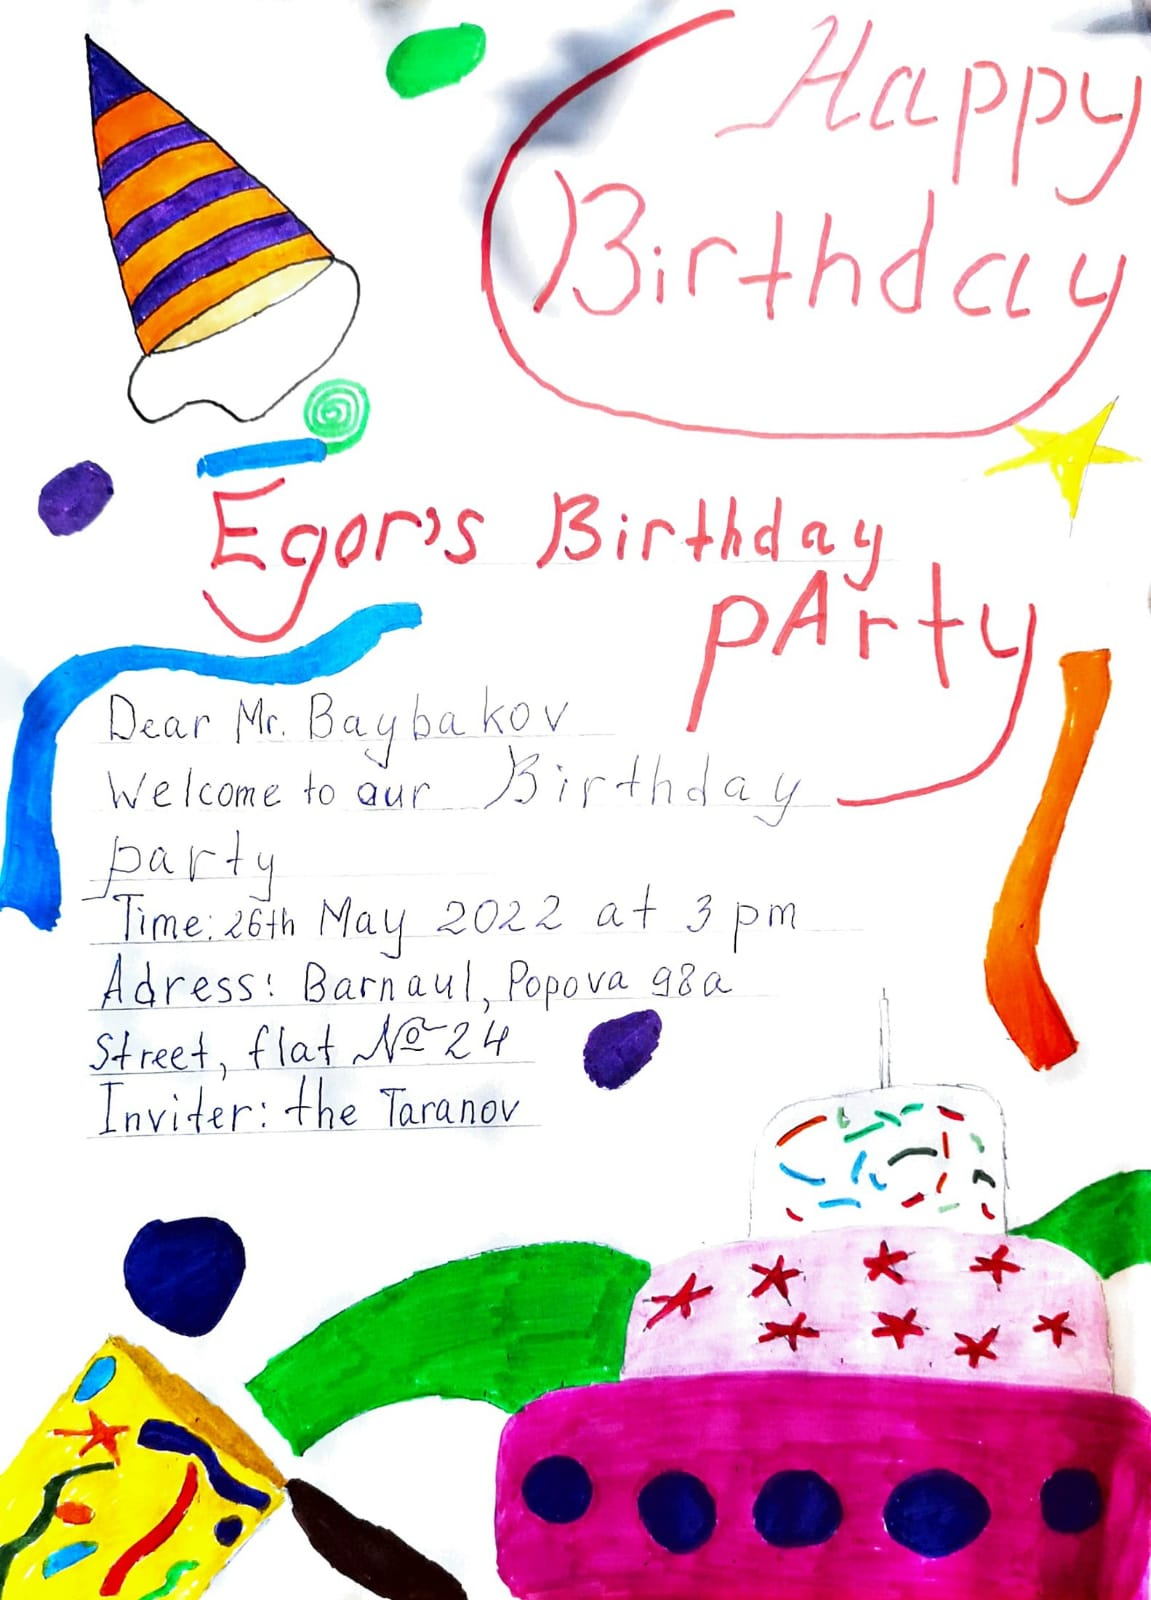 Happy
Birthday
Egor's Birthday
pArty
Dear Mr. Baybakov
Welcome to our Birthday
party
Time: 26th May 2022 at 3 pm
Adress: Barnaul, Popova 98a
Street, flat № 24
Inviter: the Taranov